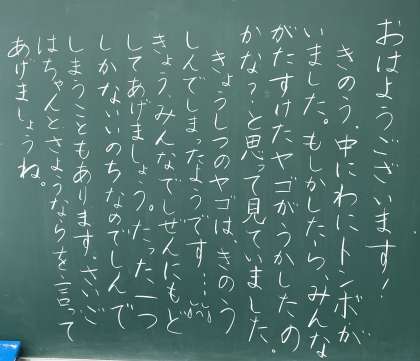 おはようございます！
きのう、中にわにトンボが
いました。もしかしたら、みんな
がたすけたヤゴがうかしたの
かな？と思って見ていました。
きょうしつのヤゴは、きのう
しんでしまったようです…
きょう、みんなでしぜんにもど
してあげましょう。たった一つ
しかないいのちなのでしんで
しまうこともあります。さいご
はちゃんとさようならを言って
あげましょうね。